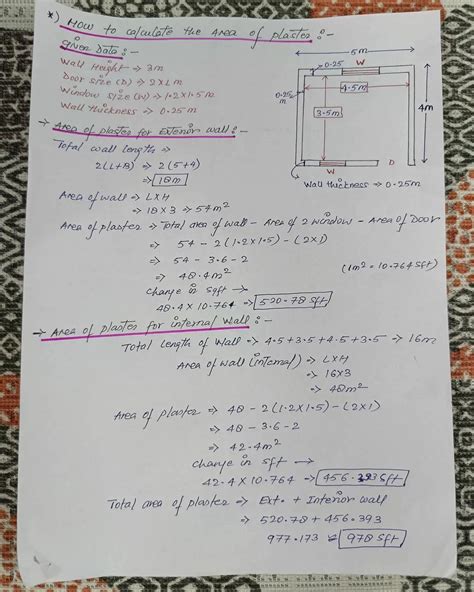 *) How to calculate the Area of plaster :-
Given Data :-
Wall Height → 3m
Door size (D) → 2x1m
Window size (W) → 1.2x1.5m
Wall thickness → 0.25m
5m
W
0.25
0.25
m
4.5m
3.5m
4m
W
D
Wall thickness → 0.25m
→ Area of plaster for Exterior wall :-
Total wall length →
2(L+B) → 2(5+4)
→ 18m
Area of wall → LXH
→ 18X3 → 54m²
Area of plaster → Total area of wall - Area of 2 window - Area of Door
→ 54 - 2(1.2x1.5) - (2x1)
→ 54 - 3.6 - 2
→ 48.4m²
(1m² = 10.764sft)
change in sqft →
48.4 X 10.764 → 520.78 sft
→ Area of plaster for internal wall :-
Total Length of Wall → 4.5+3.5+4.5+3.5 → 16m
Area of wall (internal) → LXH
→ 16X3
→ 48m²
Area of plaster → 48 - 2(1.2x1.5) - (2x1)
→ 48 - 3.6 - 2
→ 42.4m²
change in sft →
42.4 X 10.764 → 456.393 sft
Total area of plaster → Ext. + Interior wall
→ 520.78 + 456.393
977.173 ≃ 978 sft